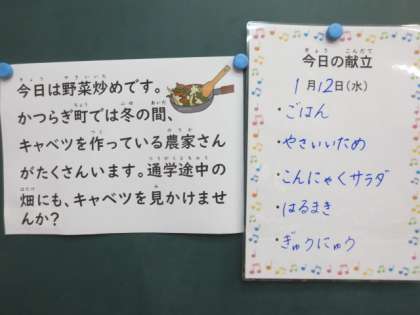 今日は野菜炒めです。
かつらぎ町では冬の間、
キャベツを作っている農家さん
がたくさんいます。通学途中の
畑にも、キャベツを見かけませ
んか？
今日の献立
1月12日(水)
・ごはん
・やさいいため
・こんにゃくサラダ
・はるまき
・ぎゅうにゅう